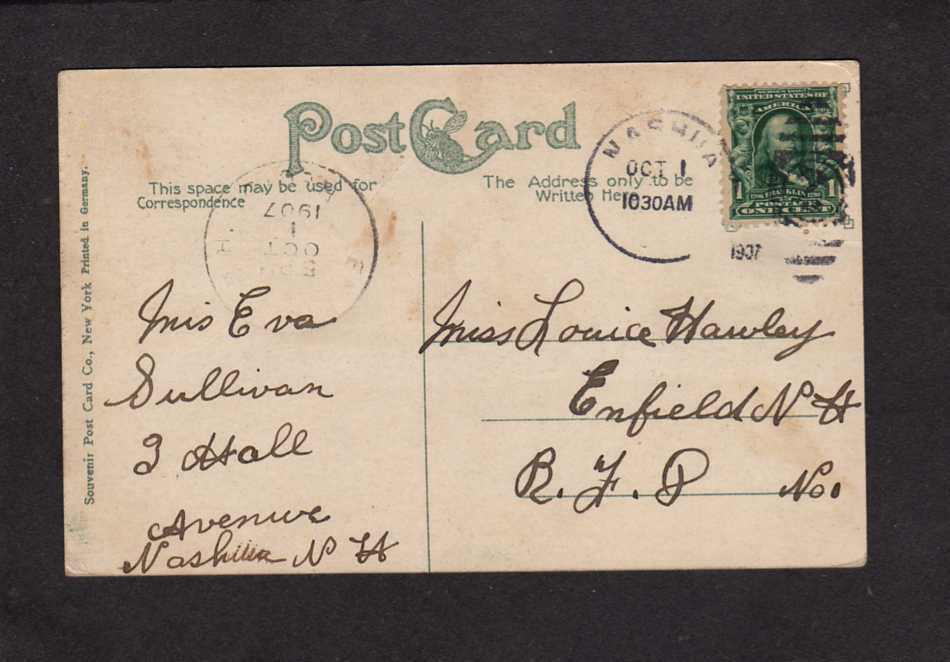 Post Card
This space may be used for
Correspondence
The Address only to be
Written Here
NASHUA
OCT 1
1030AM
1907
UNITED STATES OF
AMERICA
1 FRANKLIN
POSTAGE
ONE CENT
1907
1
OCT
Souvenir Post Card Co., New York Printed in Germany.
Mis Eva
Sullivan
3 Hall
Avenue
Nashua N H
Miss Louice Hawley
Enfield N H
R. F. D No.